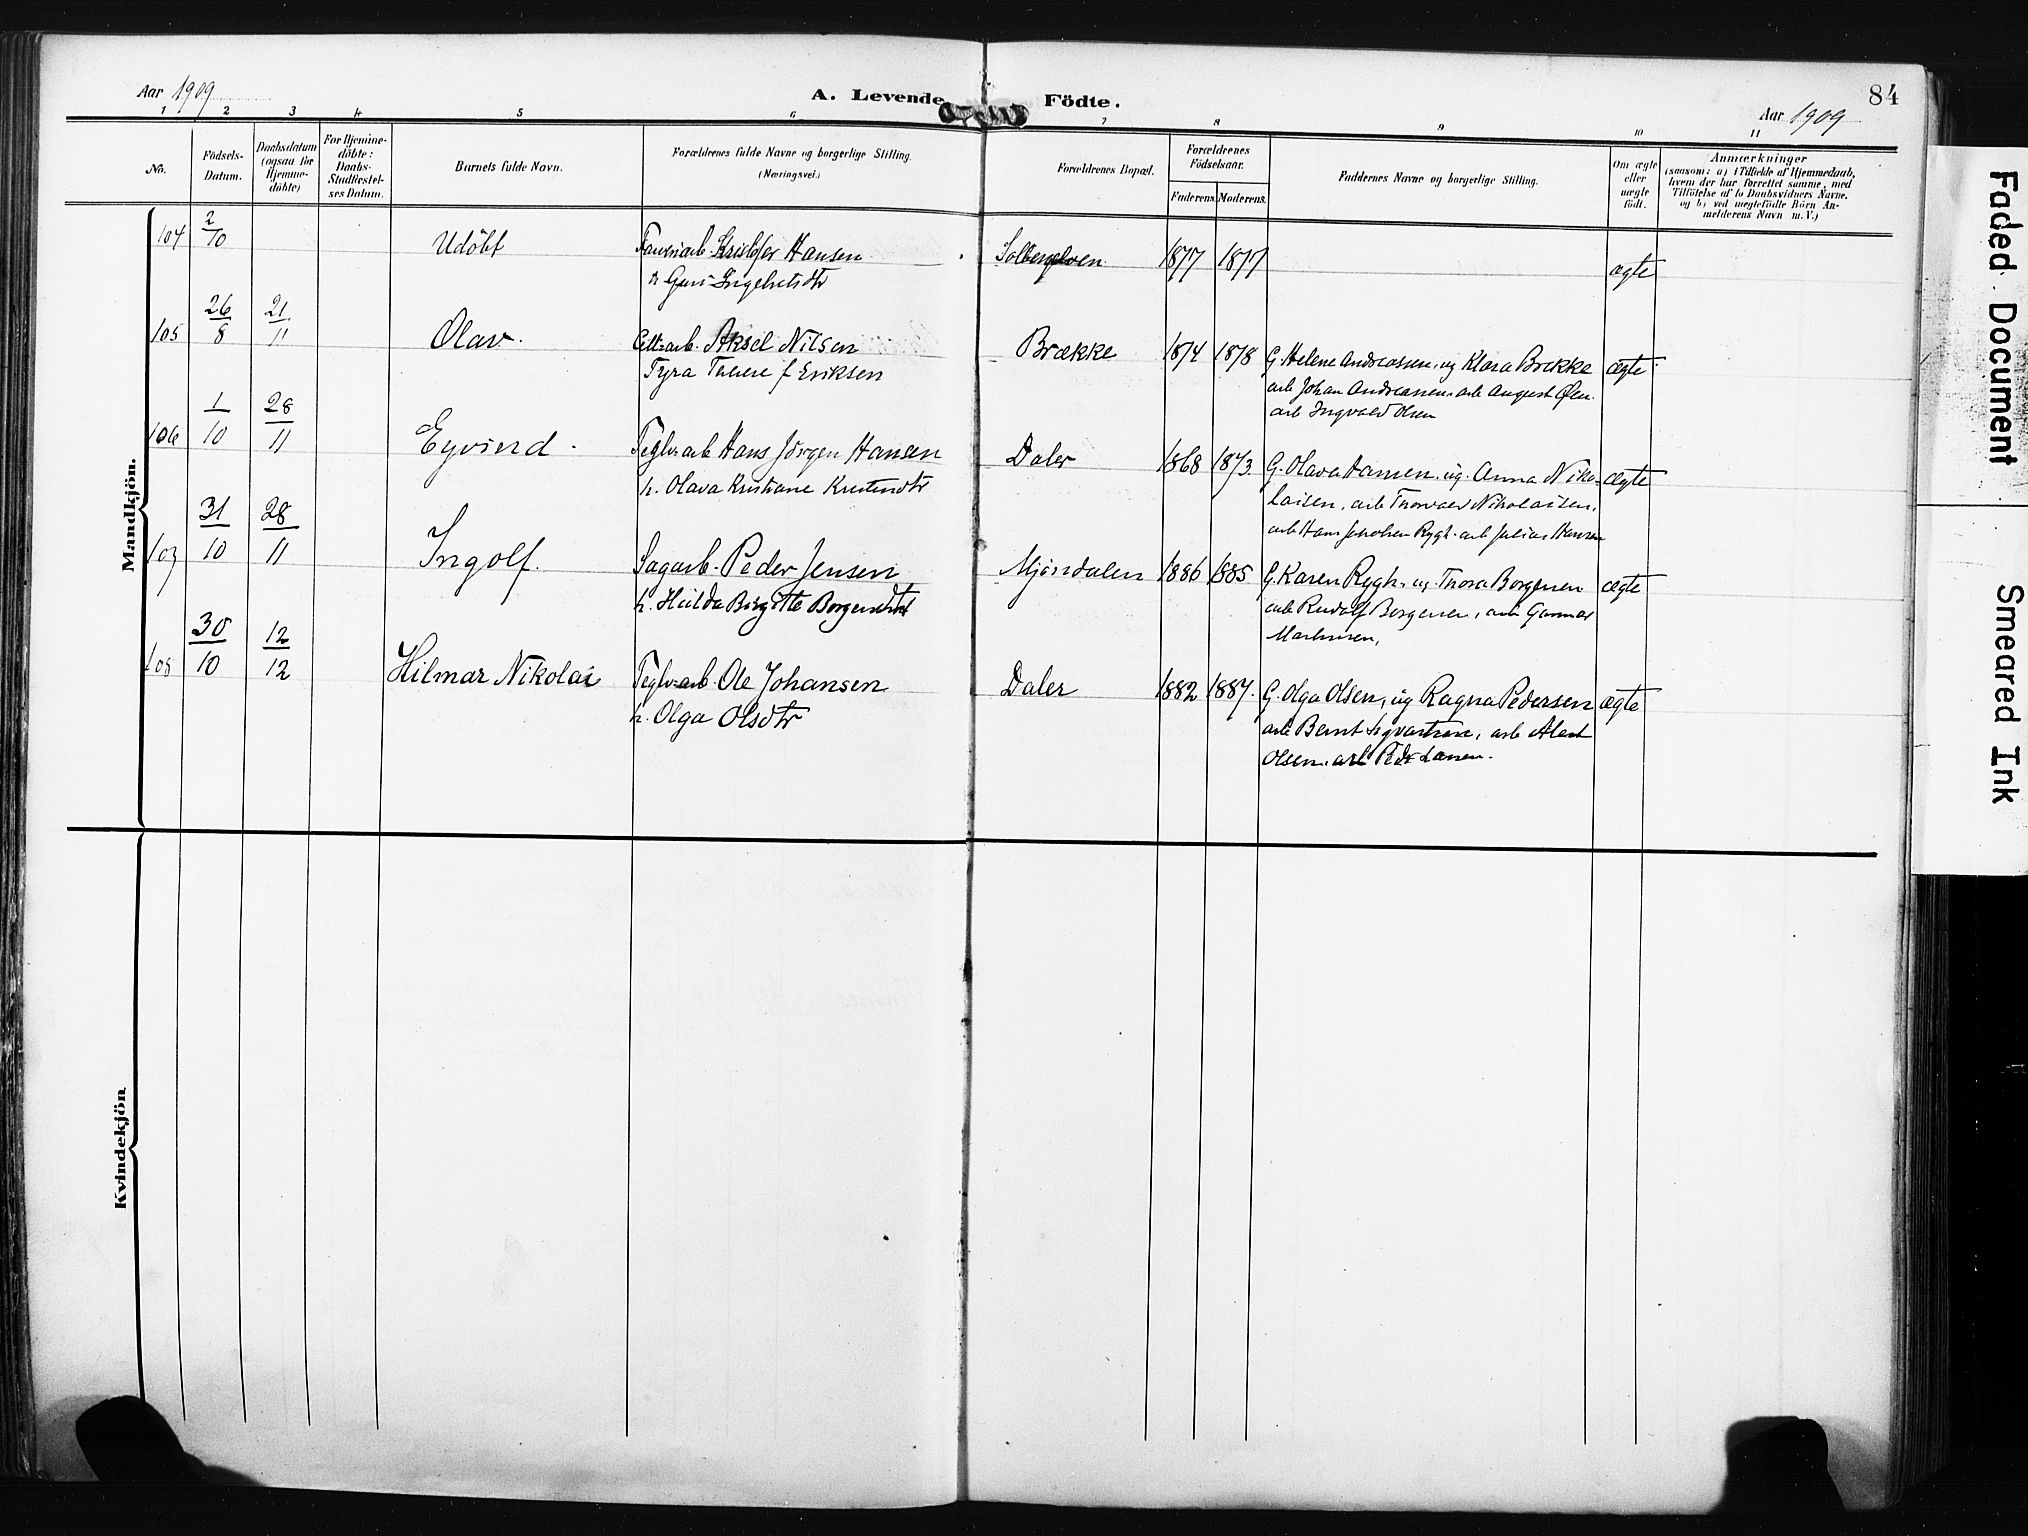 Aar 1909
A. Levende Födte.
84
Aar 1909
1 2 3 4 5 6 7 8 9 10 11
No.
Födsels-
Datum.
Daabsdatum
(ogsaa for
Hjemme-
döbte)
For Hjemme-
döbte:
Daabs-
Stadfæstel-
ses Datum.
Barnets fulde Navn.
Forældrenes fulde Navne og borgerlige Stilling.
(Næringsvei.)
Forældrenes Bopæl.
Forældrenes
Födselsaar.
Faderens. Moderens.
Faddernes Navne og borgerlige Stilling.
Om ægte
eller
uægte
födt.
Anmærkninger
(saasom: a) i Tilfælde af Hjemmedaab,
hvem der har forrettet samme, med
Tilföielse af to Daabsvidners Navne.
og b) ved uægtefödte Börn An-
melderens Navn m. V.)
Mandkjön.
104 2/10 Udöbt Kristofer Hansen Solbergelven 1877 1877 ægte
h. Guri Ingebretsdtr
105 26/8 21/11 Olav. Aksel Nilsen Brække 1874 1878 G. Helene Andreassen, ug Klara Brække ægte
Tyra f. Eriksen arb Johan Andreassen, arb August
arb Ingvald Olsen
106 1/10 28/11 Eyvind Teglv.arb Hans Jörgen Hansen Daler 1868 1873 G. Olava Hansen, ug. Anna Niko- ægte
h. Olava Kristiane laisen, arb Thorvald Nikolaisen,
arb Hans Rygh. arb Julius Hansen
107 31/10 28/11 Ingolf. Sagarb. Peder Jensen Mjöndalen 1886 1885 G. Karen Rygh. ug. Thora Borgersen ægte
h. Hulda Birgitte arb Rudolf Borgersen, arb Gunnar
108 30/10 12/12 Hilmar Nikolai Teglv.arb. Ole Johansen Daler 1882 1887. G. Olga Olsen, ug Ragna Pedersen ægte
h. Olga Olsdtr arb Bernt arb
Olsen. arb
Kvindekjön
Faded Document
Smeared Ink